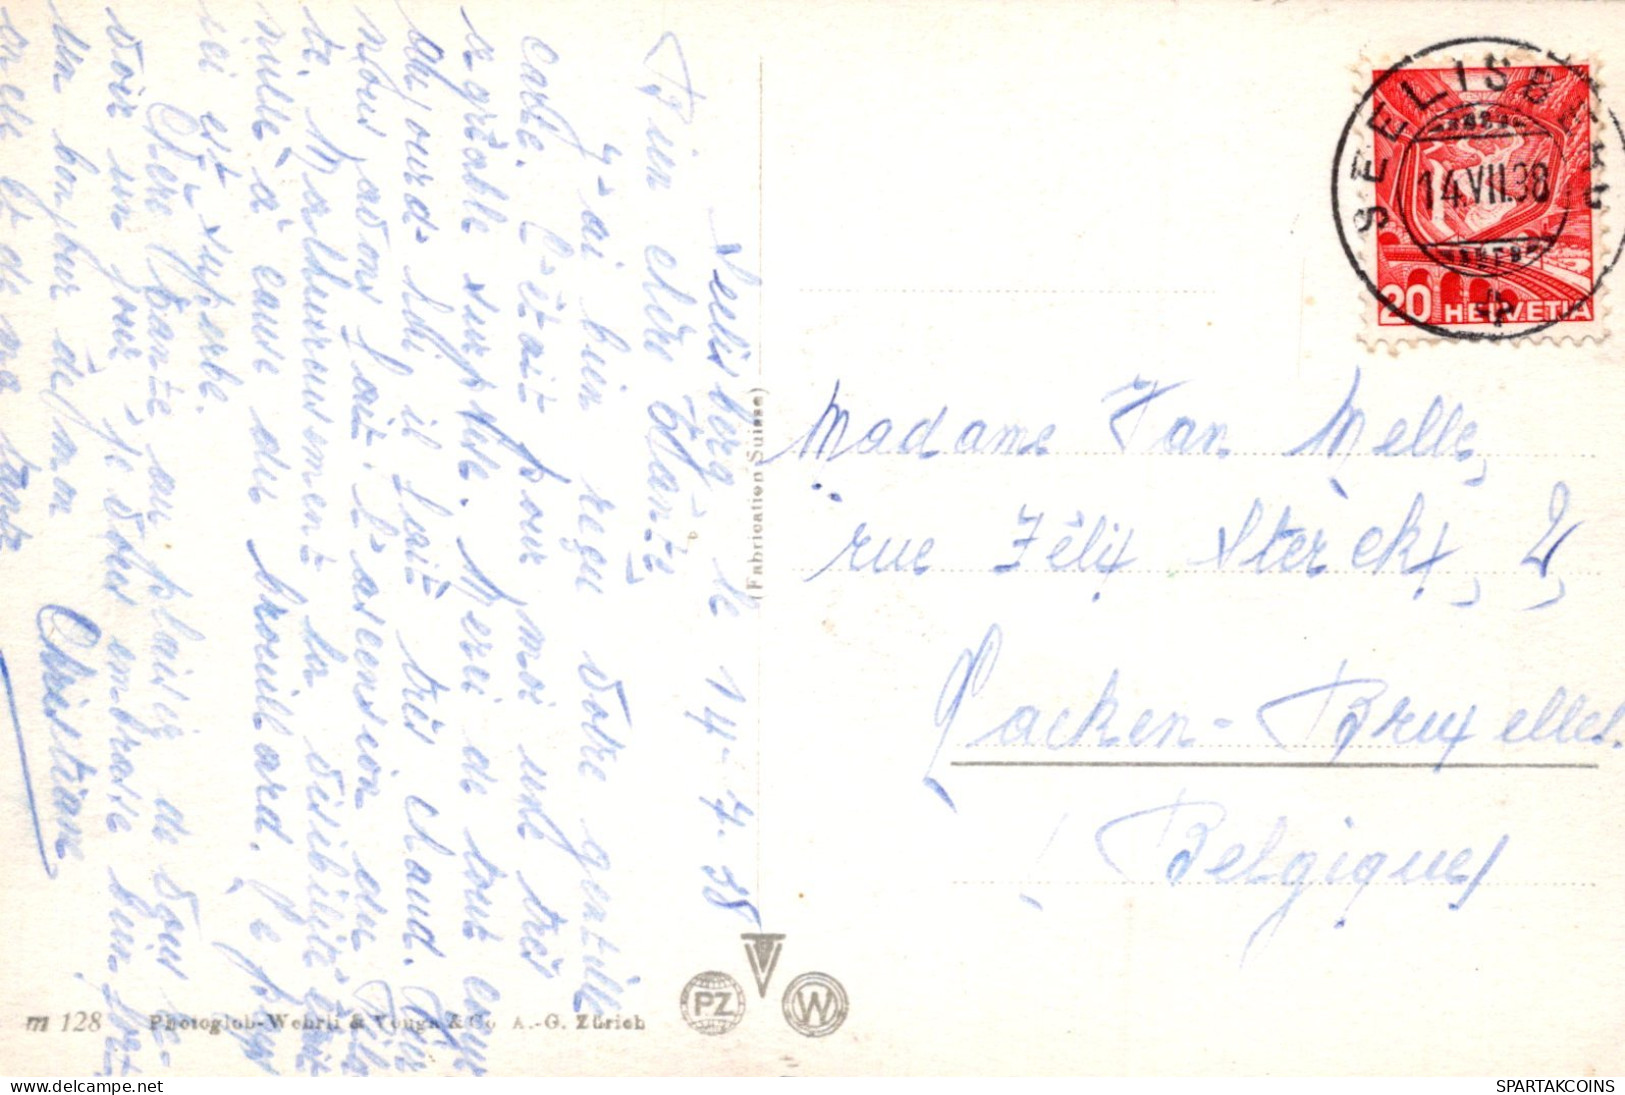 Seelisberg le 14-7-38
Bien chère Tante,
J'ai bien reçu votre gentille
carte. C'était pour moi une très
agréable surprise. Merci de tout cœur
Aujourd'hui il fait très chaud. Hier
nous avons fait l'ascension du
te. Malheureusement la visibilité était
nulle à cause du brouillard. Le pays
ici est superbe.
Chère Tante au plaisir de vous re-
voir un jour je vous embrasse bien fort
un bonjour de Man
et de ma tante
Christiane
(Fabrication Suisse)
SEELISBERG
14.VII.38
20 HELVETIA
Madame Van Melle,
rue Félix Sterckx, 2,
Laeken-Bruxelles.
(Belgique)
PZ
W
m 128 Photoglob-Wehrli & Vouga & Co A.-G. Zürich
SPARTAKCOINS
www.delcampe.net